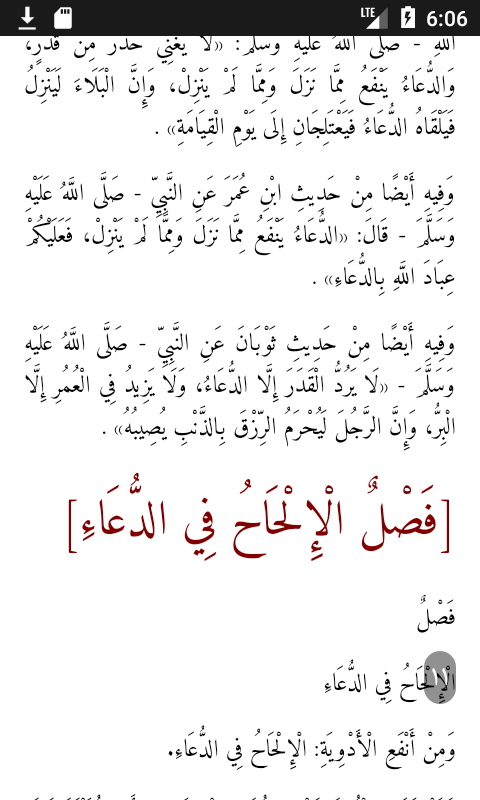 LTE 6:06
اللَّهِ - صَلَّى اللَّهُ عَلَيْهِ وَسَلَّمَ: «لَا يُغْنِي حَذَرٌ مِنْ قَدَرٍ،
وَالدُّعَاءُ يَنْفَعُ مِمَّا نَزَلَ وَمِمَّا لَمْ يَنْزِلْ، وَإِنَّ الْبَلَاءَ لَيَنْزِلُ
فَيَلْقَاهُ الدُّعَاءُ فَيَعْتَلِجَانِ إِلَى يَوْمِ الْقِيَامَةِ» .
وَفِيهِ أَيْضًا مِنْ حَدِيثِ ابْنِ عُمَرَ عَنِ النَّبِيِّ - صَلَّى اللَّهُ عَلَيْهِ
وَسَلَّمَ - قَالَ: «الدُّعَاءُ يَنْفَعُ مِمَّا نَزَلَ وَمِمَّا لَمْ يَنْزِلْ، فَعَلَيْكُمْ
عِبَادَ اللَّهِ بِالدُّعَاءِ» .
وَفِيهِ أَيْضًا مِنْ حَدِيثِ ثَوْبَانَ عَنِ النَّبِيِّ - صَلَّى اللَّهُ عَلَيْهِ
وَسَلَّمَ - «لَا يَرُدُّ الْقَدَرَ إِلَّا الدُّعَاءُ، وَلَا يَزِيدُ فِي الْعُمُرِ إِلَّا
الْبِرُّ، وَإِنَّ الرَّجُلَ لَيُحْرَمُ الرِّزْقَ بِالذَّنْبِ يُصِيبُهُ» .
[فَصْلٌ الْإِلْحَاحُ فِي الدُّعَاءِ]
فَصْلٌ
الْإِلْحَاحُ فِي الدُّعَاءِ
١١
وَمِنْ أَنْفَعِ الْأَدْوِيَةِ: الْإِلْحَاحُ فِي الدُّعَاءِ.